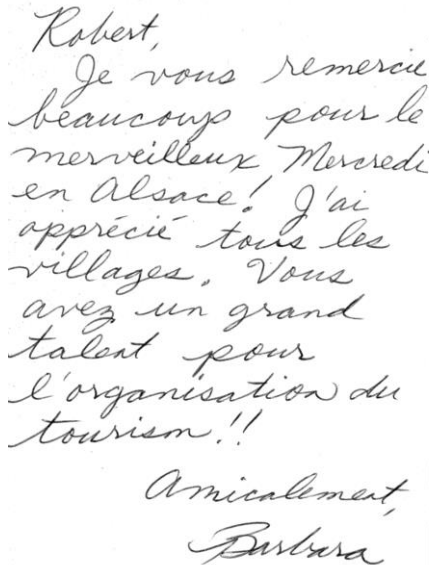 Robert,
Je vous remercie
beaucoup pour le
merveilleux Mercredi
en Alsace! J'ai
apprécié tous les
villages. Vous
avez un grand
talent pour
l'organisation du
tourism!!
Amicalement,
Barbara